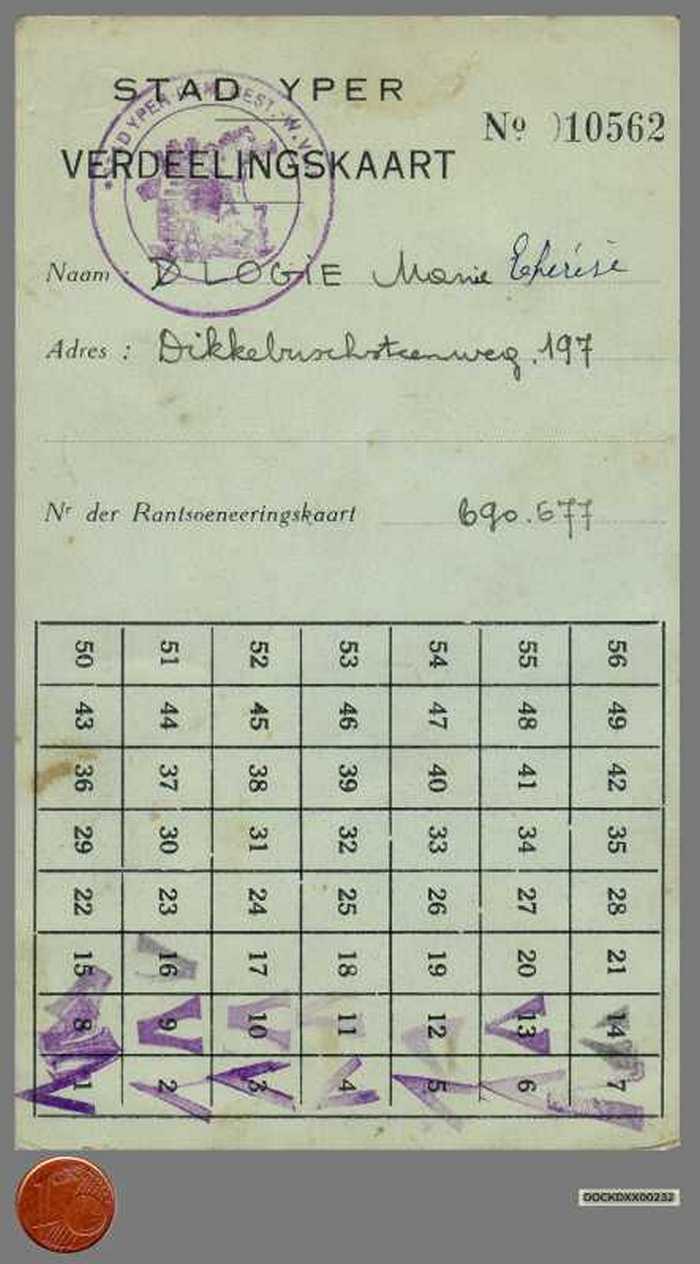 STAD YPER
Nº 10562
VERDEELINGSKAART
Naam : DLOGIE Marie Thérèse
Adres : Dikkebuschsteenweg. 197
Nr der Rantsoeneeringskaart 690.677
50 51 52 53 54 55 56
43 44 45 46 47 48 49
36 37 38 39 40 41 42
29 30 31 32 33 34 35
22 23 24 25 26 27 28
15 16 17 18 19 20 21
8 9 10 11 12 13 14
1 2 3 4 5 6 7
DOCKDXX00232